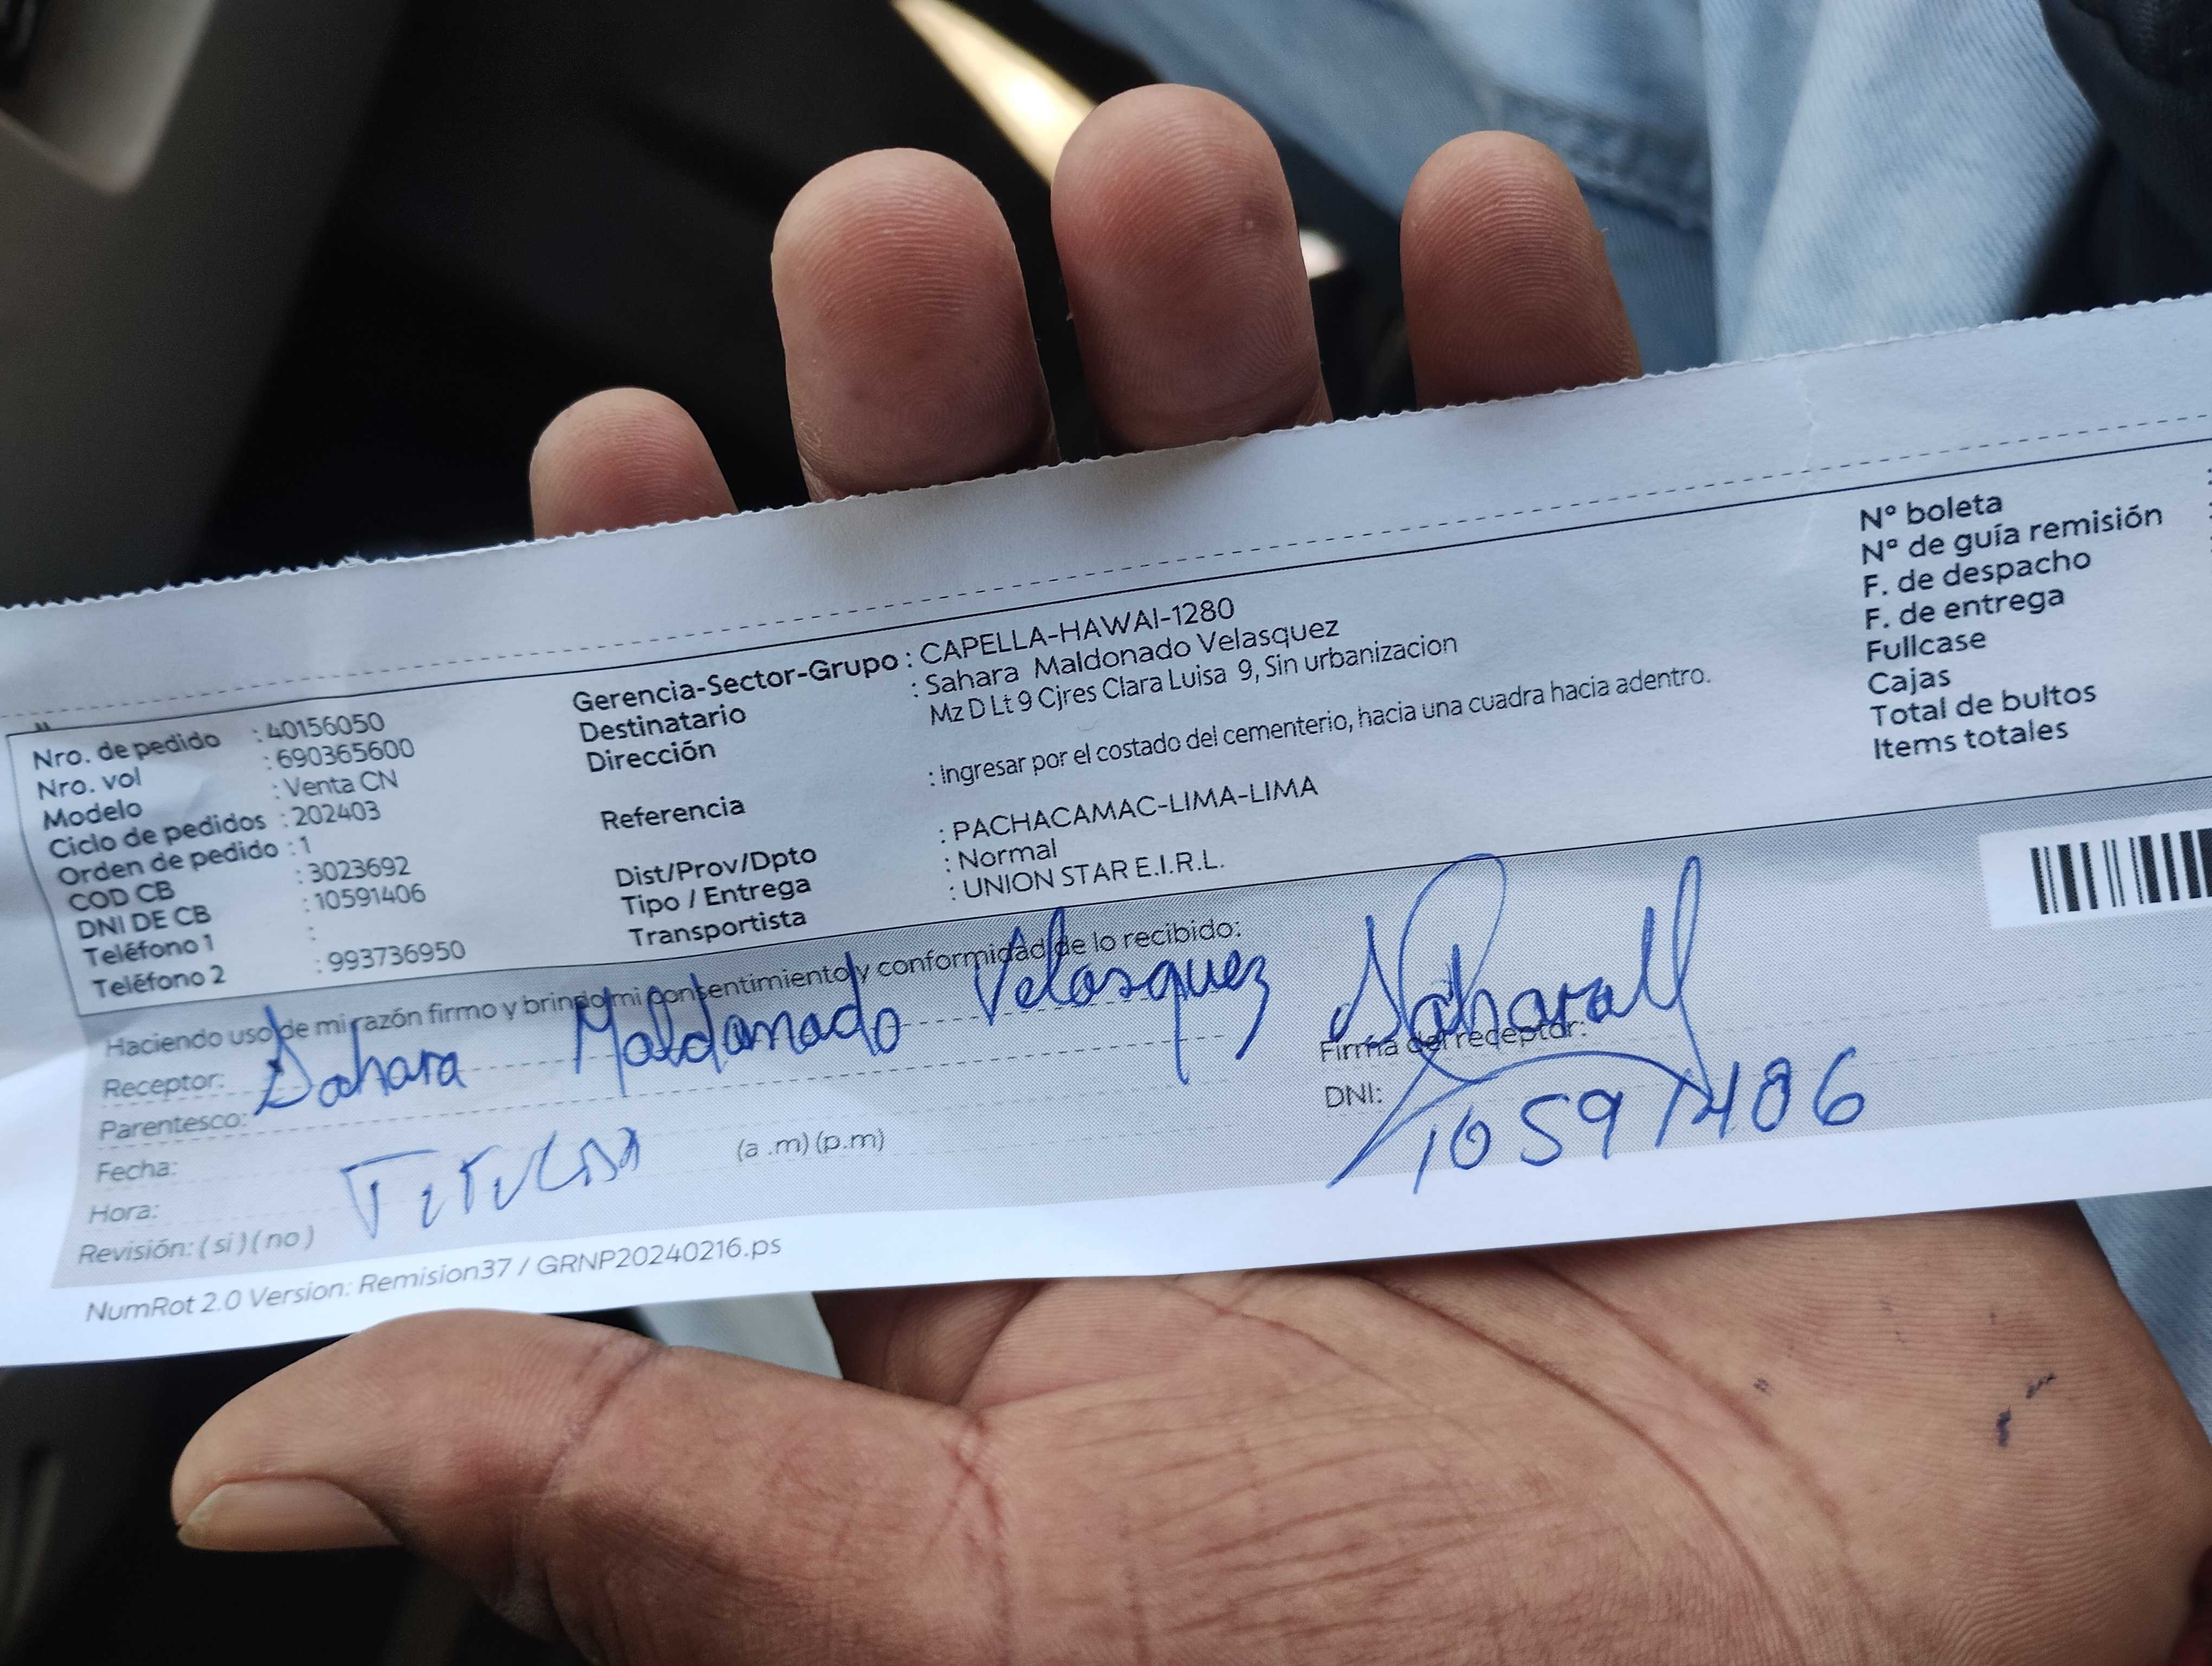 Nro. de pedido : 40156050
Nro. vol : 690365600
Modelo : Venta CN
Ciclo de pedidos : 202403
Orden de pedido : 1
COD CB : 3023692
DNI DE CB : 10591406
Teléfono 1 :
Teléfono 2 : 993736950
Gerencia-Sector-Grupo : CAPELLA-HAWAI-1280
Destinatario : Sahara Maldonado Velasquez
Dirección Mz D Lt 9 Cjres Clara Luisa 9, Sin urbanizacion
Referencia : Ingresar por el costado del cementerio, hacia una cuadra hacia adentro.
Dist/Prov/Dpto : PACHACAMAC-LIMA-LIMA
Tipo / Entrega : Normal
Transportista : UNION STAR E.I.R.L.
N° boleta
N° de guía remisión :
F. de despacho
F. de entrega
Fullcase
Cajas
Total de bultos
Items totales
Haciendo uso de mi razón firmo y brindo mi consentimiento y conformidad de lo recibido:
Receptor: Sahara Maldonado Velasquez
Firma del receptor:
Parentesco:
DNI: 10591406
Fecha:
Hora: (a .m) (p.m)
Revisión: ( si ) ( no )
NumRot 2.0 Version: Remision37 / GRNP20240216.ps